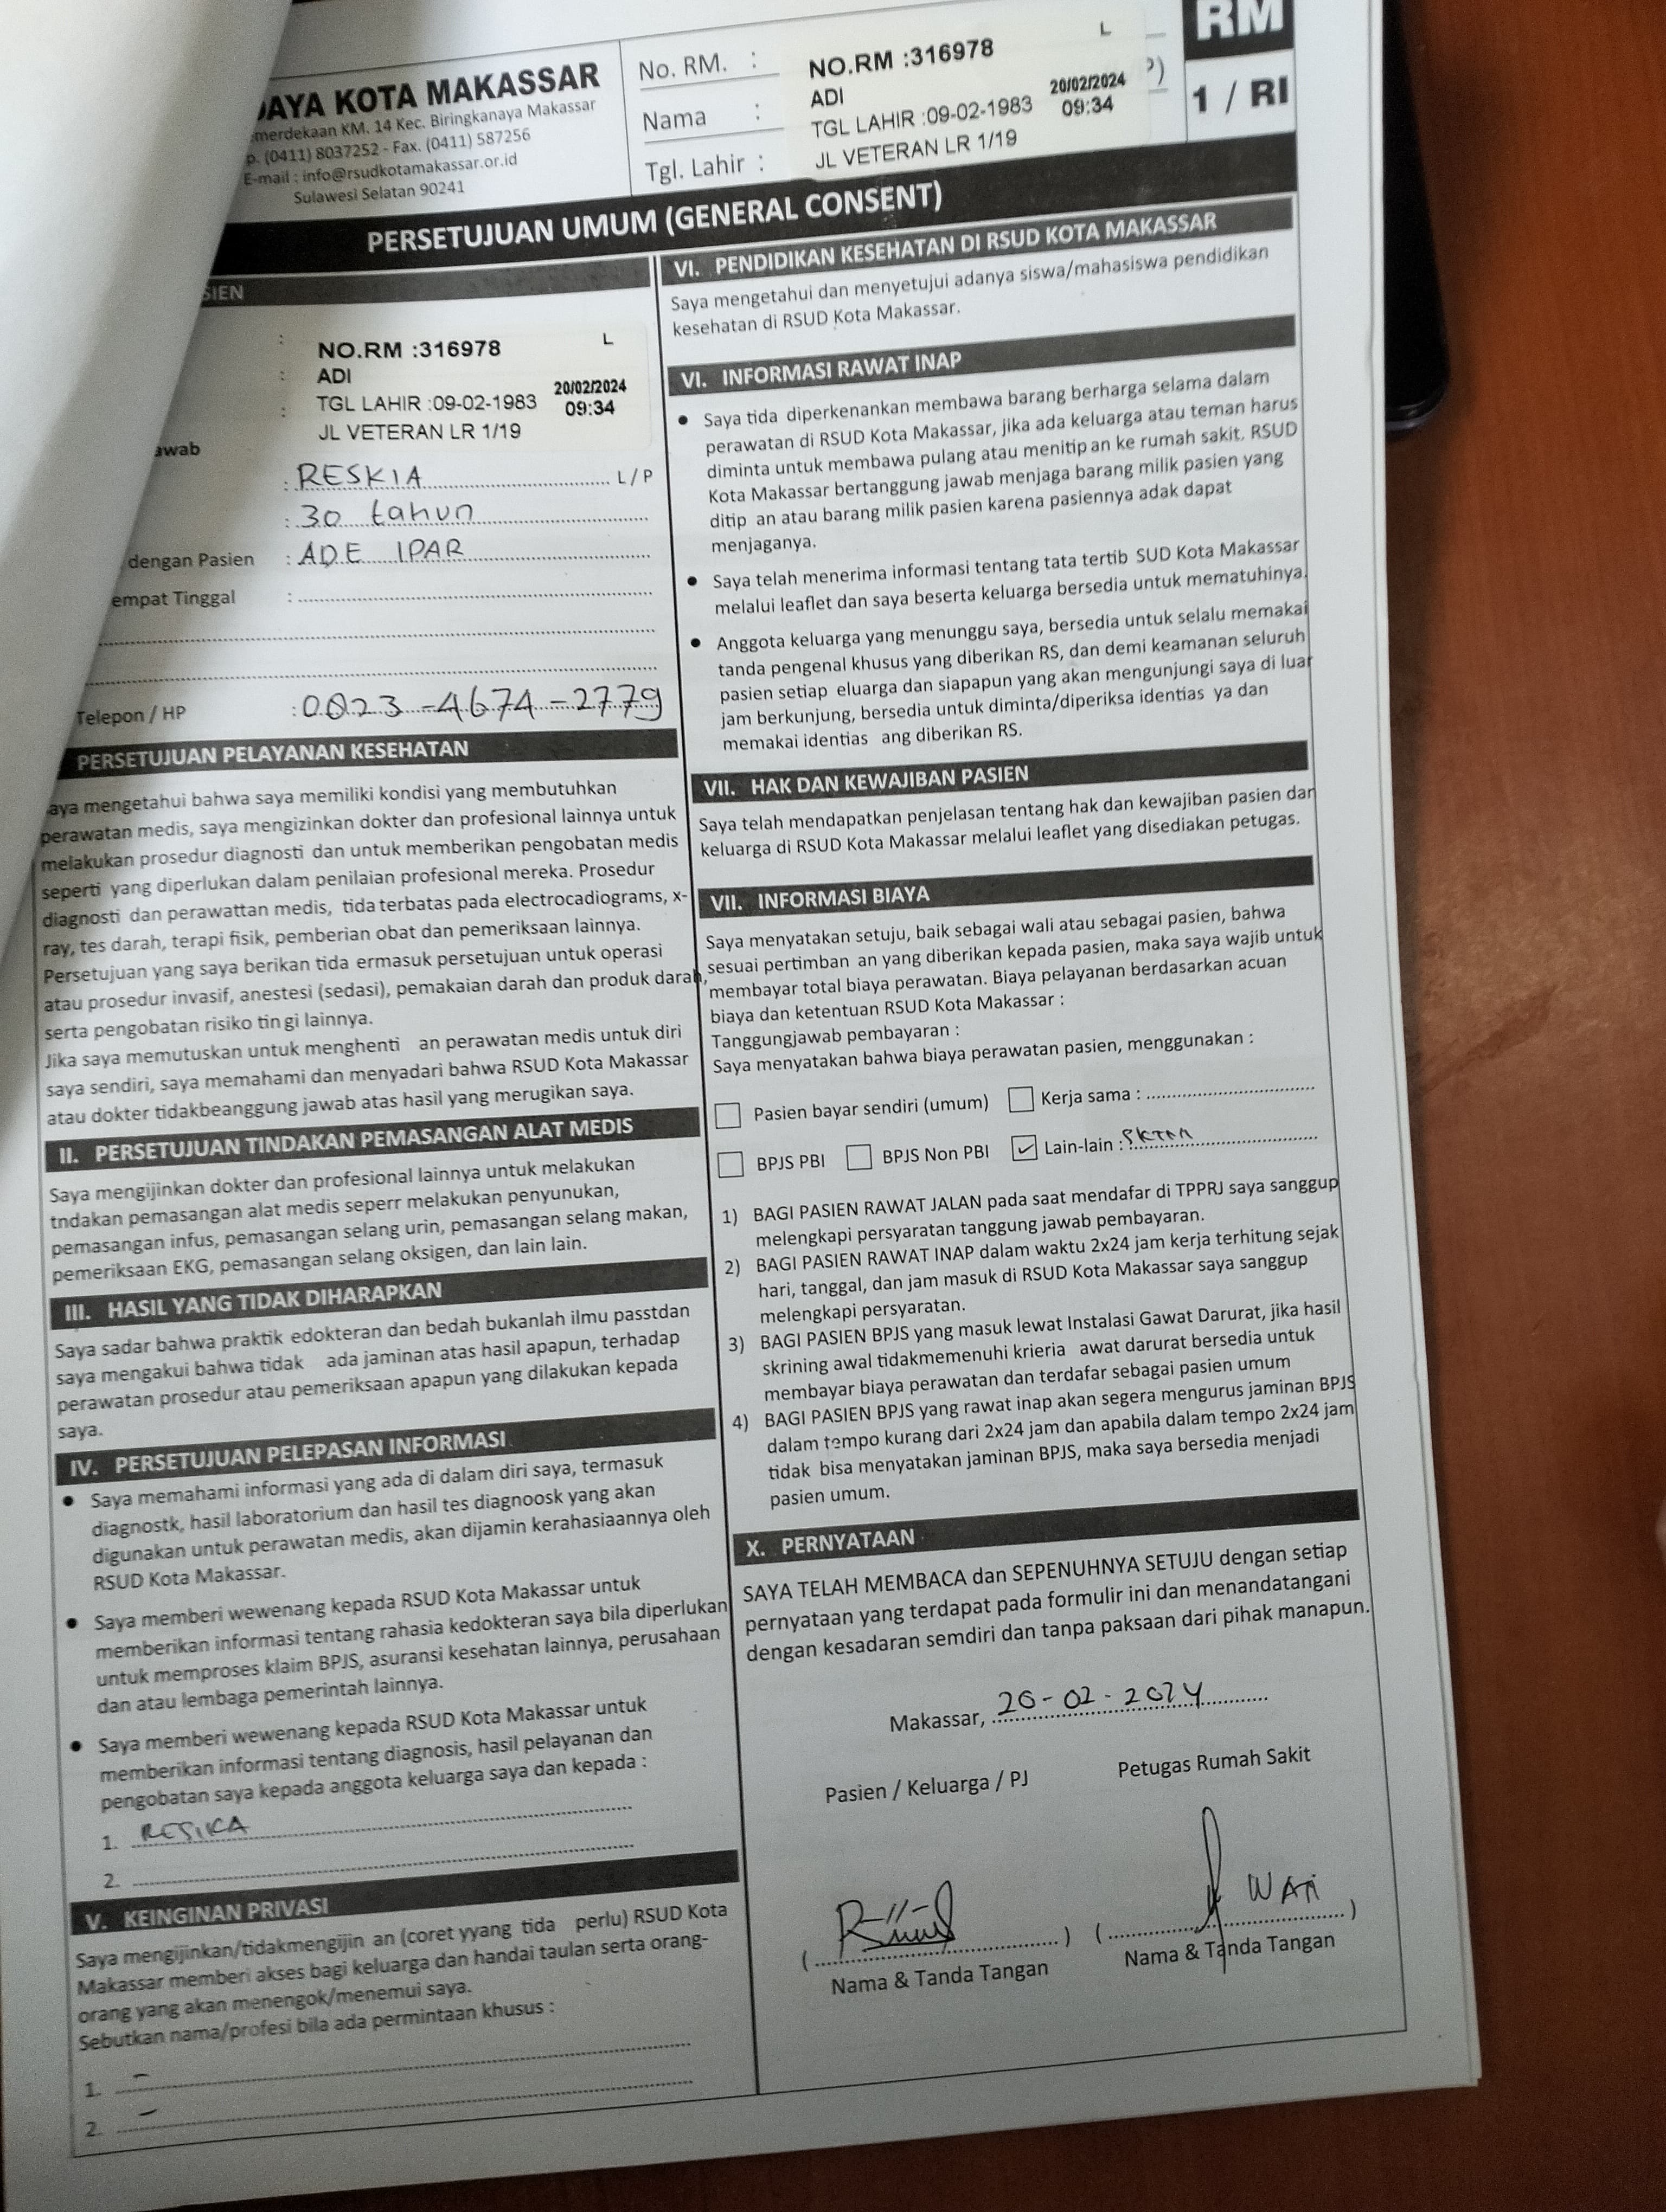 JAYA KOTA MAKASSAR
merdekaan KM. 14 Kec. Biringkanaya Makassar
p. (0411) 8037252 - Fax. (0411) 587256
E-mail : info@rsudkotamakassar.or.id
Sulawesi Selatan 90241
No. RM. :
Nama :
Tgl. Lahir :
NO.RM :316978 L
ADI 20/02/2024
TGL LAHIR :09-02-1983 09:34
JL VETERAN LR 1/19
RM
1 / RI
PERSETUJUAN UMUM (GENERAL CONSENT)
SIEN
:
:
:
NO.RM :316978 L
ADI 20/02/2024
TGL LAHIR :09-02-1983 09:34
JL VETERAN LR 1/19
awab
: RESKIA L / P
: 30 tahun
dengan Pasien : ADE IPAR
empat Tinggal :
Telepon / HP : 0823-4674-2779
PERSETUJUAN PELAYANAN KESEHATAN
aya mengetahui bahwa saya memiliki kondisi yang membutuhkan
perawatan medis, saya mengizinkan dokter dan profesional lainnya untuk
melakukan prosedur diagnosti dan untuk memberikan pengobatan medis
seperti yang diperlukan dalam penilaian profesional mereka. Prosedur
diagnosti dan perawattan medis, tida terbatas pada electrocadiograms, x-
ray, tes darah, terapi fisik, pemberian obat dan pemeriksaan lainnya.
Persetujuan yang saya berikan tida ermasuk persetujuan untuk operasi
atau prosedur invasif, anestesi (sedasi), pemakaian darah dan produk darah,
serta pengobatan risiko tin gi lainnya.
Jika saya memutuskan untuk menghenti an perawatan medis untuk diri
saya sendiri, saya memahami dan menyadari bahwa RSUD Kota Makassar
atau dokter tidakbeanggung jawab atas hasil yang merugikan saya.
II. PERSETUJUAN TINDAKAN PEMASANGAN ALAT MEDIS
Saya mengijinkan dokter dan profesional lainnya untuk melakukan
tndakan pemasangan alat medis seperr melakukan penyunukan,
pemasangan infus, pemasangan selang urin, pemasangan selang makan,
pemeriksaan EKG, pemasangan selang oksigen, dan lain lain.
III. HASIL YANG TIDAK DIHARAPKAN
Saya sadar bahwa praktik edokteran dan bedah bukanlah ilmu passtdan
saya mengakui bahwa tidak ada jaminan atas hasil apapun, terhadap
perawatan prosedur atau pemeriksaan apapun yang dilakukan kepada
saya.
IV. PERSETUJUAN PELEPASAN INFORMASI
• Saya memahami informasi yang ada di dalam diri saya, termasuk
diagnostk, hasil laboratorium dan hasil tes diagnoosk yang akan
digunakan untuk perawatan medis, akan dijamin kerahasiaannya oleh
RSUD Kota Makassar.
• Saya memberi wewenang kepada RSUD Kota Makassar untuk
memberikan informasi tentang rahasia kedokteran saya bila diperlukan
untuk memproses klaim BPJS, asuransi kesehatan lainnya, perusahaan
dan atau lembaga pemerintah lainnya.
• Saya memberi wewenang kepada RSUD Kota Makassar untuk
memberikan informasi tentang diagnosis, hasil pelayanan dan
pengobatan saya kepada anggota keluarga saya dan kepada :
1. RESIKA
2.
V. KEINGINAN PRIVASI
Saya mengijinkan/tidakmengijin an (coret yyang tida perlu) RSUD Kota
Makassar memberi akses bagi keluarga dan handai taulan serta orang-
orang yang akan menengok/menemui saya.
Sebutkan nama/profesi bila ada permintaan khusus :
1. -
2. -
VI. PENDIDIKAN KESEHATAN DI RSUD KOTA MAKASSAR
Saya mengetahui dan menyetujui adanya siswa/mahasiswa pendidikan
kesehatan di RSUD Kota Makassar.
VI. INFORMASI RAWAT INAP
• Saya tida diperkenankan membawa barang berharga selama dalam
perawatan di RSUD Kota Makassar, jika ada keluarga atau teman harus
diminta untuk membawa pulang atau menitip an ke rumah sakit. RSUD
Kota Makassar bertanggung jawab menjaga barang milik pasien yang
ditip an atau barang milik pasien karena pasiennya adak dapat
menjaganya.
• Saya telah menerima informasi tentang tata tertib SUD Kota Makassar
melalui leaflet dan saya beserta keluarga bersedia untuk mematuhinya.
• Anggota keluarga yang menunggu saya, bersedia untuk selalu memakai
tanda pengenal khusus yang diberikan RS, dan demi keamanan seluruh
pasien setiap eluarga dan siapapun yang akan mengunjungi saya di luar
jam berkunjung, bersedia untuk diminta/diperiksa identias ya dan
memakai identias ang diberikan RS.
VII. HAK DAN KEWAJIBAN PASIEN
Saya telah mendapatkan penjelasan tentang hak dan kewajiban pasien dar
keluarga di RSUD Kota Makassar melalui leaflet yang disediakan petugas.
VII. INFORMASI BIAYA
Saya menyatakan setuju, baik sebagai wali atau sebagai pasien, bahwa
sesuai pertimban an yang diberikan kepada pasien, maka saya wajib untuk
membayar total biaya perawatan. Biaya pelayanan berdasarkan acuan
biaya dan ketentuan RSUD Kota Makassar :
Tanggungjawab pembayaran :
Saya menyatakan bahwa biaya perawatan pasien, menggunakan :
Pasien bayar sendiri (umum) Kerja sama :
BPJS PBI BPJS Non PBI ✓ Lain-lain : SKTM
1) BAGI PASIEN RAWAT JALAN pada saat mendafar di TPPRJ saya sanggup
melengkapi persyaratan tanggung jawab pembayaran.
2) BAGI PASIEN RAWAT INAP dalam waktu 2x24 jam kerja terhitung sejak
hari, tanggal, dan jam masuk di RSUD Kota Makassar saya sanggup
melengkapi persyaratan.
3) BAGI PASIEN BPJS yang masuk lewat Instalasi Gawat Darurat, jika hasil
skrining awal tidakmemenuhi krieria awat darurat bersedia untuk
membayar biaya perawatan dan terdafar sebagai pasien umum
4) BAGI PASIEN BPJS yang rawat inap akan segera mengurus jaminan BPJS
dalam tempo kurang dari 2x24 jam dan apabila dalam tempo 2x24 jam
tidak bisa menyatakan jaminan BPJS, maka saya bersedia menjadi
pasien umum.
X. PERNYATAAN
SAYA TELAH MEMBACA dan SEPENUHNYA SETUJU dengan setiap
pernyataan yang terdapat pada formulir ini dan menandatangani
dengan kesadaran semdiri dan tanpa paksaan dari pihak manapun.
Makassar, 20-02-2024
Pasien / Keluarga / PJ Petugas Rumah Sakit
WATI
Nama & Tanda Tangan Nama & Tanda Tangan